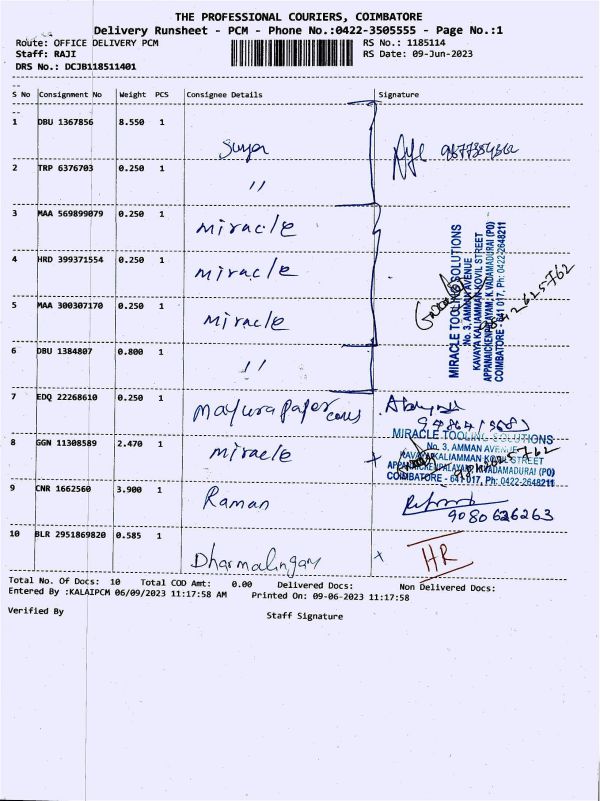 THE PROFESSIONAL COURIERS, COIMBATORE
Delivery Runsheet - PCM - Phone No.:0422-3505555 - Page No.:1
Route: OFFICE DELIVERY PCM
RS No.: 1185114
Staff: RAJI
RS Date: 09-Jun-2023
DRS No.: DCJB118511401
S No Consignment No Weight PCS Consignee Details Signature
1 DBU 1367856 8.550 1
Surya
2 TRP 6376703 0.250 1
"
3 MAA 569899079 0.250 1
miracle
4 HRD 399371554 0.250 1
miracle
5 MAA 300307170 0.250 1
miracle
6 DBU 1384807 0.800 1
"
MIRACLE TOOLING SOLUTIONS
No. 3, AMMAN AVENUE
KAVAYA KALIAMMAN KOVIL STREET
APPANAICKENPALAYAM, K.VADAMADURAI (PO)
COIMBATORE - 641 017, Ph: 0422-2648211
7 EDQ 22268610 0.250 1
mayura paper
8 GGN 11308589 2.470 1
miracle +
MIRACLE TOOLING SOLUTIONS
No. 3, AMMAN AVENUE
KAVAYA KALIAMMAN KOVIL STREET
APPANAICKENPALAYAM, K.VADAMADURAI (PO)
COIMBATORE - 641 017, Ph: 0422-2648211
9 CNR 1662560 3.900 1
Raman
9080626263
10 BLR 2951869820 0.585 1
Dharmalingam + HR
Total No. Of Docs: 10 Total COD Amt: 0.00 Delivered Docs: Non Delivered Docs:
Entered By :KALAIPCM 06/09/2023 11:17:58 AM Printed On: 09-06-2023 11:17:58
Verified By Staff Signature